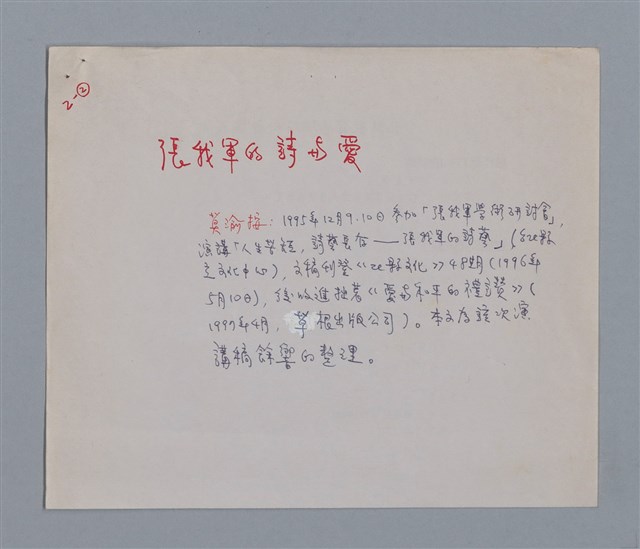 2-②
張我軍的詩与愛
莫渝按：1995年12月9.10日参加「張我軍學術研討會」,
演講「人生苦短，詩藝長存——張我軍的詩藝」(北縣
立文化中心)，文稿刊登《北縣文化》48期(1996年
5月10日)，後收進拙著《愛与和平的禮讚》(
1997年4月，草根出版公司)。本文為該次演
講稿餘響的整理。